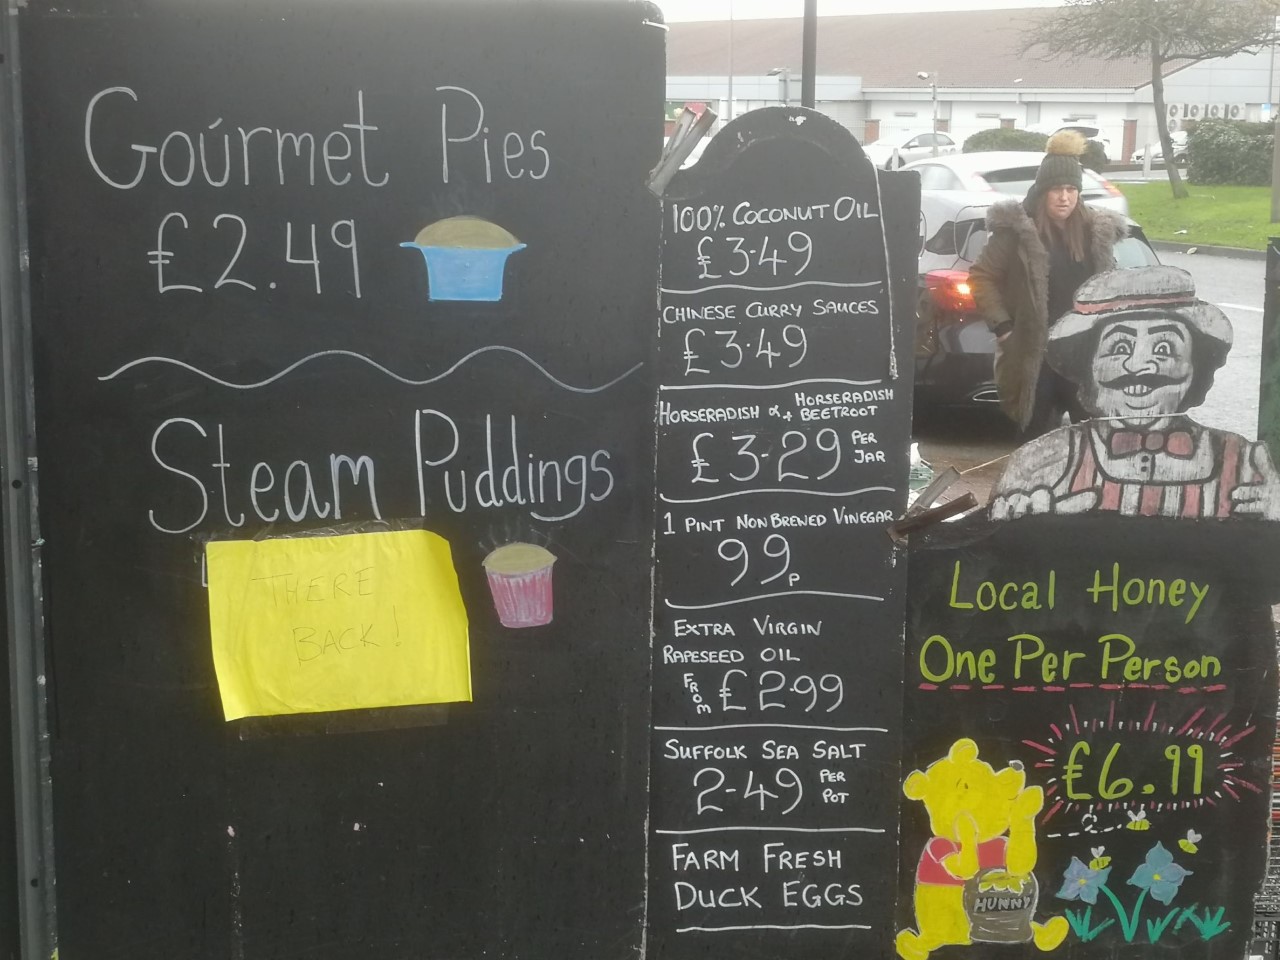 Gourmet Pies
£2.49
Steam Puddings
THERE
BACK!
100% COCONUT OIL
£3.49
CHINESE CURRY SAUCES
£3.49
HORSERADISH & + HORSERADISH BEETROOT
£3.29 PER JAR
1 PINT NON BREWED VINEGAR
99p
EXTRA VIRGIN
RAPESEED OIL
FROM £2.99
SUFFOLK SEA SALT
2.49 PER POT
FARM FRESH
DUCK EGGS
Local Honey
One Per Person
£6.99
HUNNY